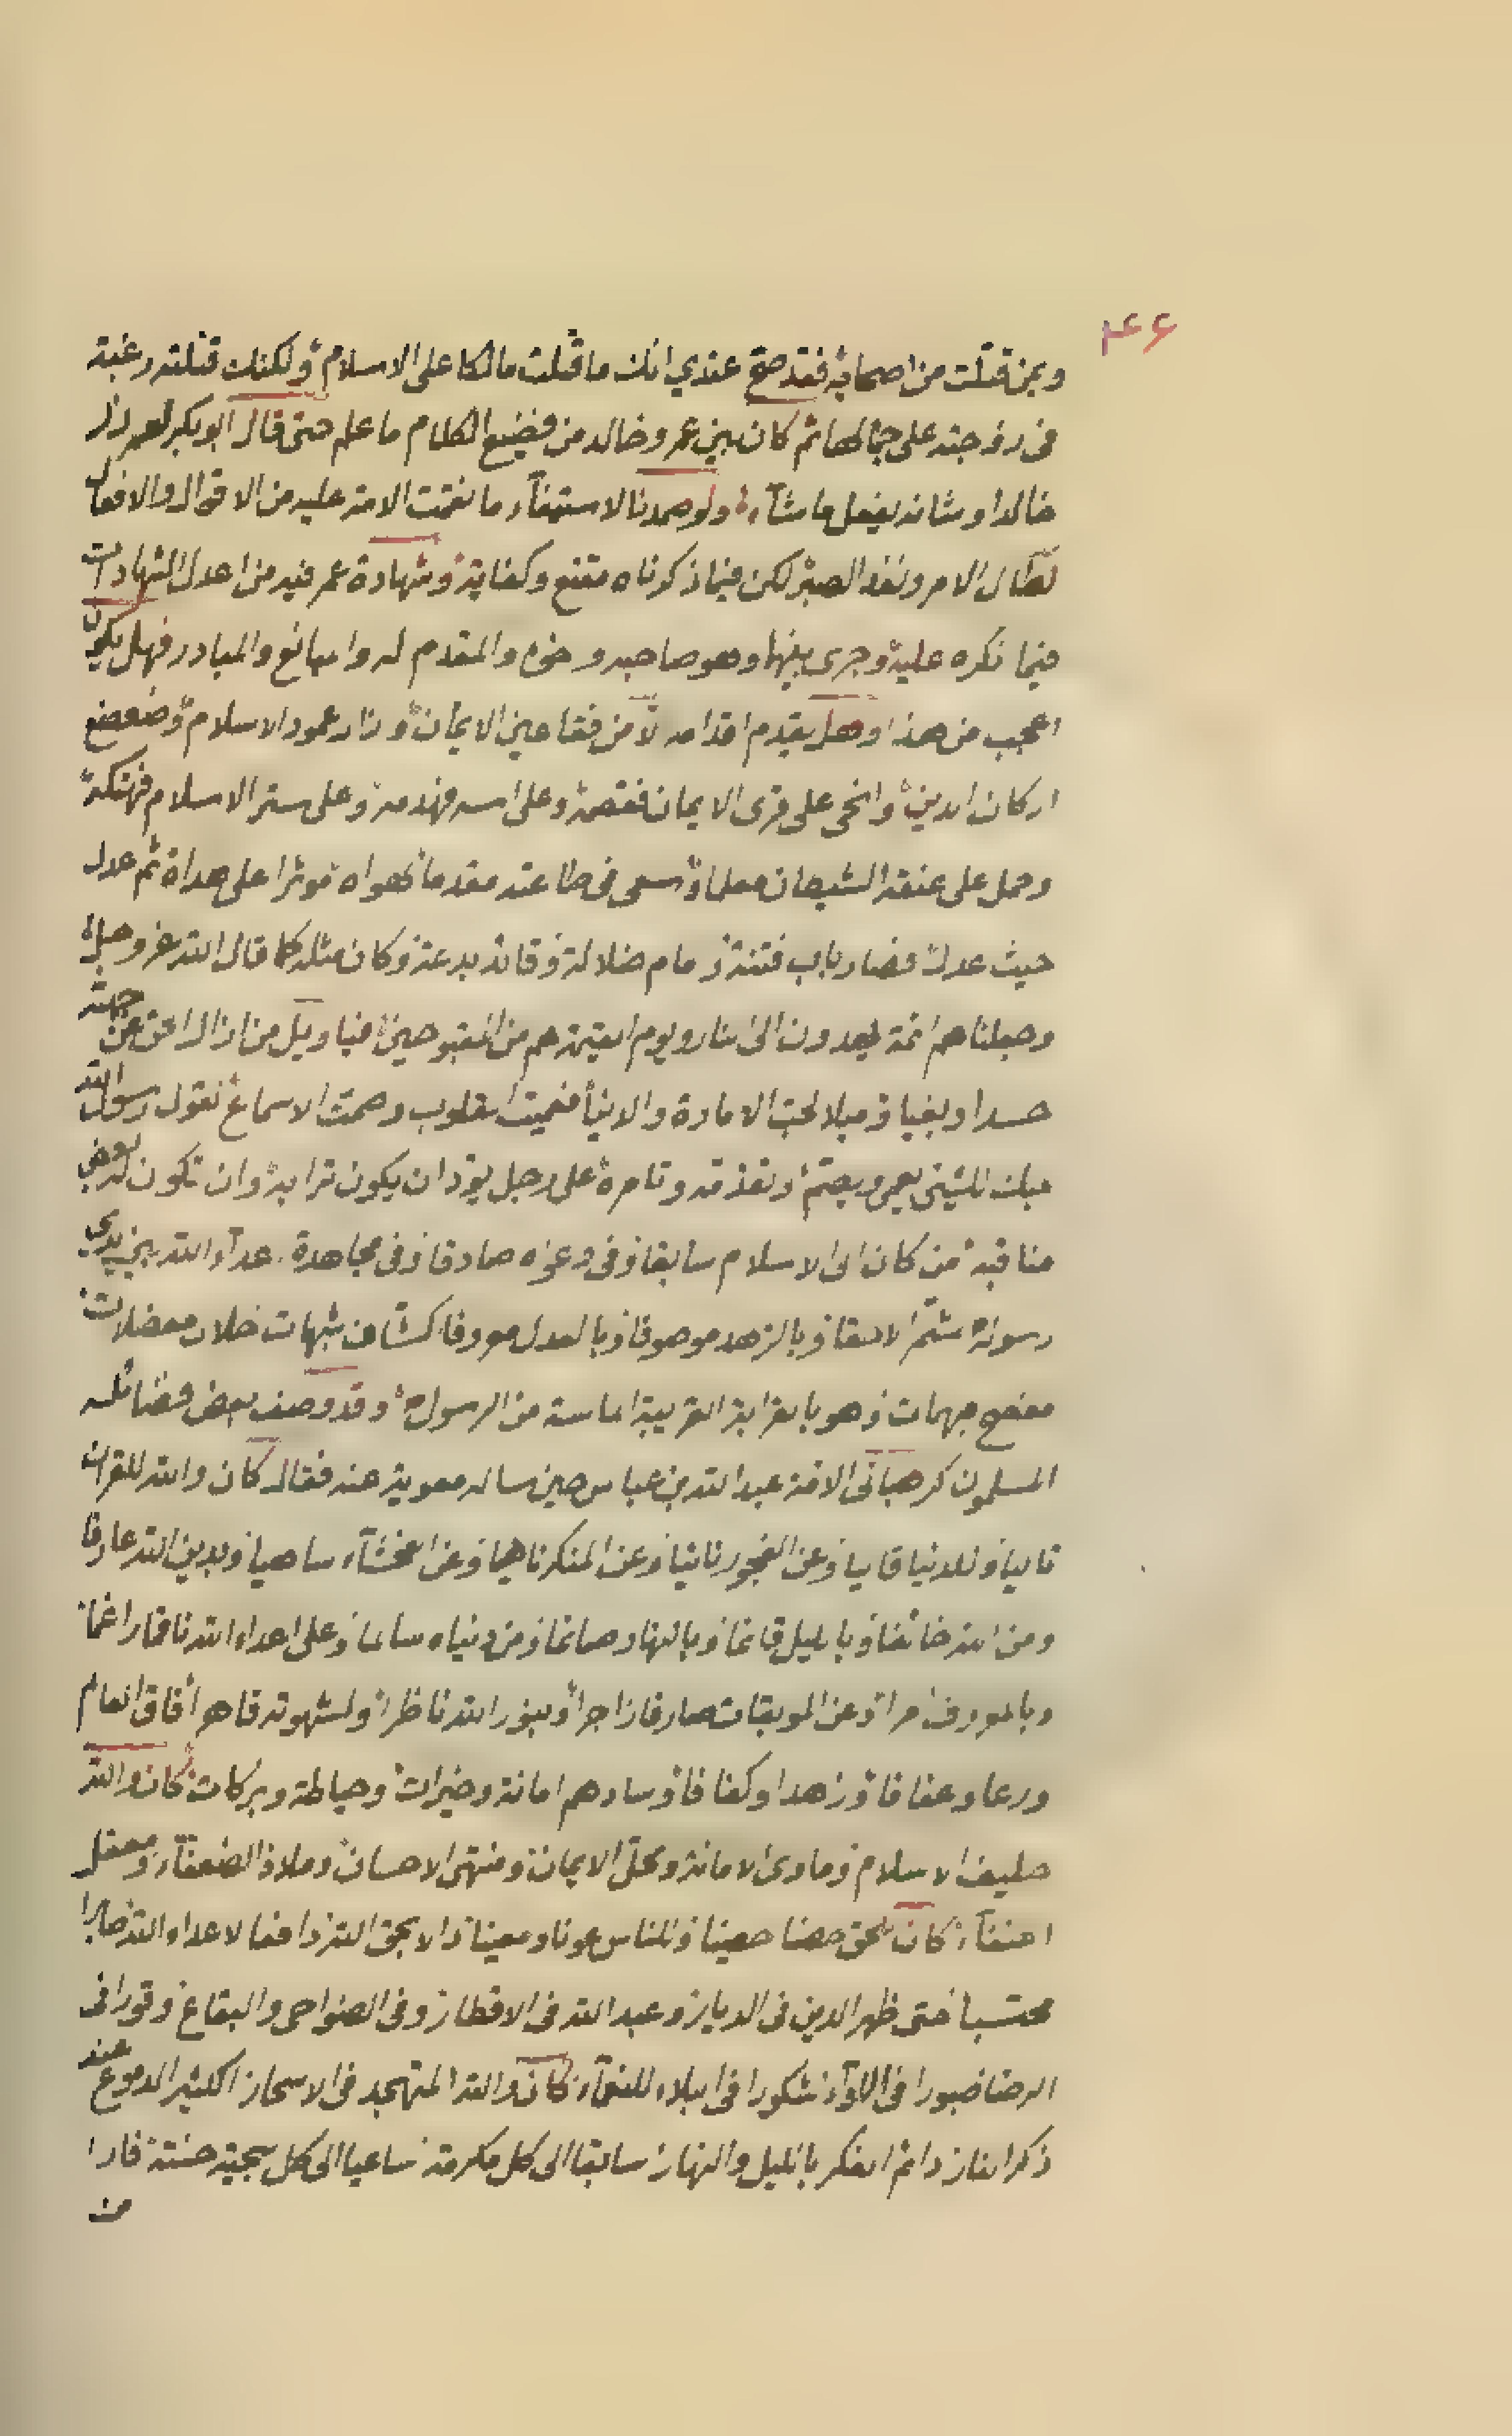 ۴۶
وبمن قتلت من اصحابه فقد صح عندي انك ما قتلت مالكا على الاسلام ولكنك قتلته رغبة
في زوجته على جمالها ثم كان بين عمر وخالد من فضيع الكلام ما علم حتى قال ابو بكر لعمر ذر
خالدا وشانه يفعل ما شآء ولو صمدنا لاستهفآء ما نغمت الامة عليه من الاقوال والافعال
لطال الامر ونفذ الصبر لكن فيما ذكرناه مقنع وكفاية وشهادة عمر فيه من اعدل الشهادات
فيما نكره عليه وجرى بينهما وهو صاحبه و والمقدم له والمبايع والمبادر فهل يكون
اعجب من هذا وهل يقدم اقدامه الا من فقا عين الايمان وزار عمود الاسلام وضعضع
اركان الدين وانحى على قرى الايمان فقصمه وعلى اسه فهدمه وعلى ستر الاسلام فهتكه
وحمل على عنقه الشيطان معلما وسعى في طاعته مقدما لهواه موثرا على هداه ثم عدل
حيث عدل فصار باب فتنة وزمام ضلالة وقائد بدعة وكان مثله كما قال الله عز وجل
وجعلناهم ائمة يهدون الى النار ويوم القيمة هم من المقبوحين فيا ويل من ازال الحق عن جهته
حسدا وبغيا وميلا لحب الامارة والدنيا فعميت القلوب وصمت الاسماع لقول رسول الله
حبك للشيئ يعمي ويصم وتقدمه وتامره على رجل يود ان يكون ترابه وان تكون له بعض
مناقبه من كان الى الاسلام سابقا وفي دعواه صادقا وفي مجاهدة اعدآء الله بين يدي
رسوله مشمرا لاحقا وبالزهد موصوفا وبالعدل معروفا كشاف شبهات حلال معضلات
مفضح جهمات وهو بالقرابة القريبة الماسة من الرسول وقد وصف بعض فضائله
المسلمون كرهباني الامة عبد الله بن عباس حين ساله معوية عنه فقال كان والله للقران
تاليا وللدنيا قاليا وعن الفجور نائيا وعن المنكر ناهيا وعن الفحشآء ساهيا وبدين الله عارفا
ومن الله خائفا وبالليل قائما وبالنهار صائما ومن دنياه سالما وعلى اعداء الله ناقما راغما
وبالمعروف امرا وعن الموبقات صارفا زاجرا وبنور الله ناظرا ولشهوته قاهرا فاق العالم
ورعا وعفافا وزهدا وكفافا وسادهم امانة وخيرات وحياطة وبركات كان والله
حليف الاسلام وماوى الامانة ومحل الايمان ومنتهى الاحسان وملاذ الضعفآء ومعقل
الحنفآء كان للحق حصنا حصينا وللناس عونا ومعينا ذالا بحق الله دافعا لاعداء الله صابرا
محتسبا حتى ظهر الدين في الديار وعبد الله في الاقطار وفي الضواحي والبقاع وقورا في
الرضا صبورا في اللاوآء شكورا في البلاء للنعمآء كان والله المتهجد في الاسحار الكثير الدموع عند
ذكر النار دائم الفكر بالليل والنهار سابقا الى كل مكرمة ساعيا الى كل سجية حسنة فارا
من